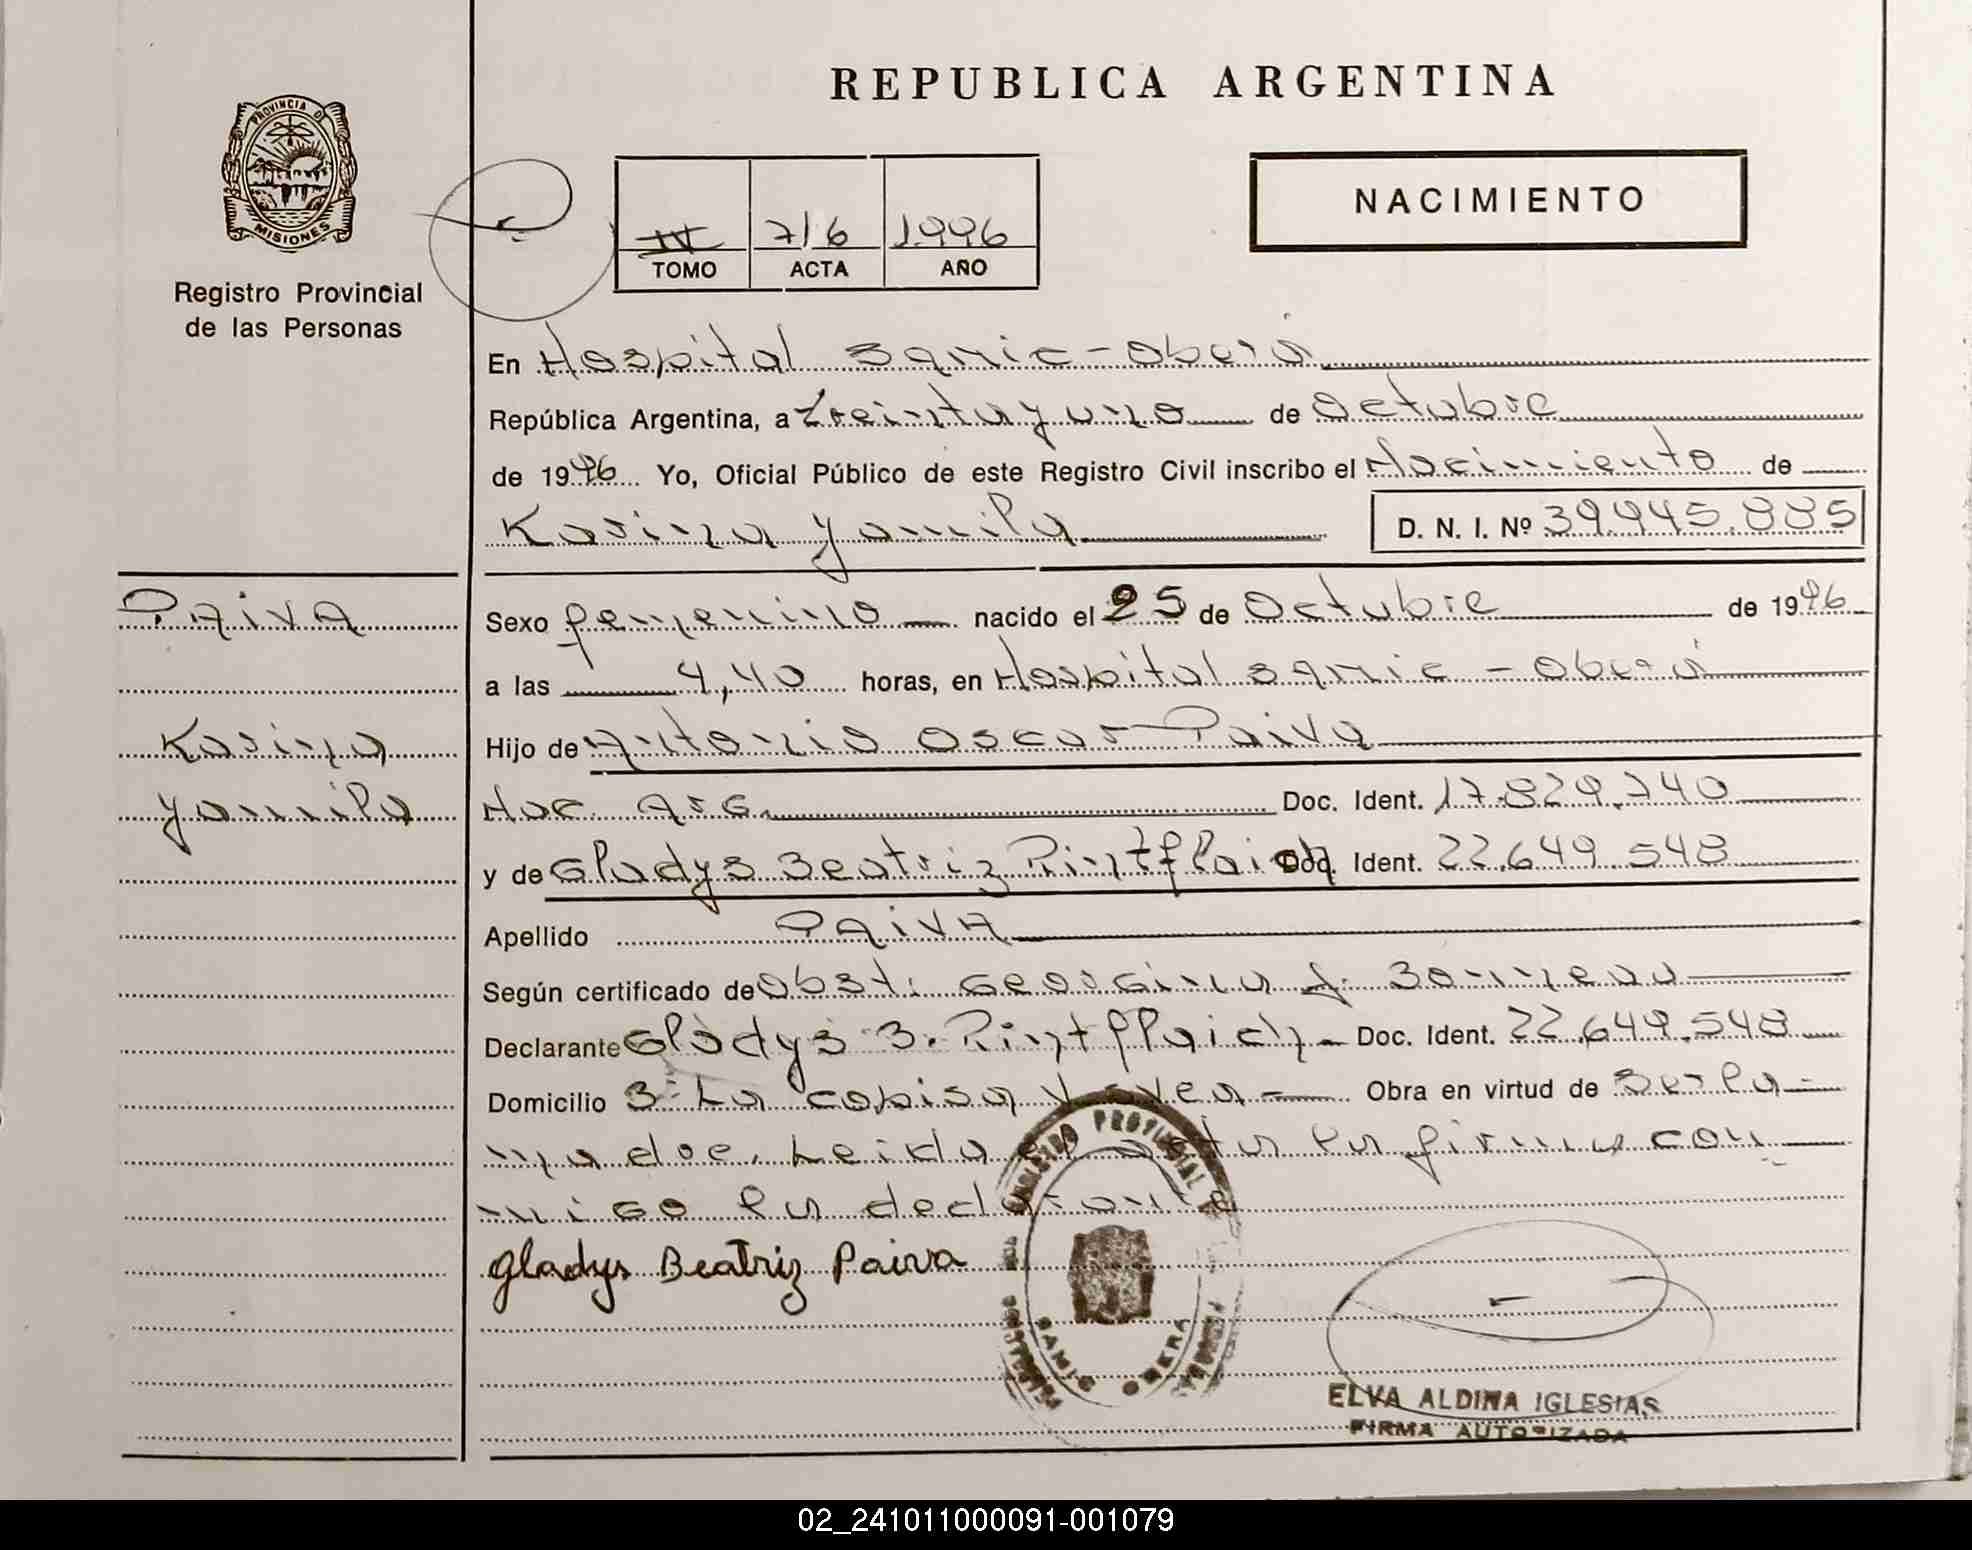 REPUBLICA ARGENTINA
PROVINCIA DE MISIONES
Registro Provincial
de las Personas
IV 716 1996
TOMO ACTA AÑO
NACIMIENTO
En Hospital Samic - Oberá
República Argentina, a treinta y uno de Octubre
de 1996 Yo, Oficial Público de este Registro Civil inscribo el Nacimiento de
Karina Yamila D. N. I. Nº 39.945.885
PAIVA
Karina
Yamila
Sexo femenino nacido el 25 de Octubre de 1996
a las 4,40 horas, en Hospital Samic - Oberá
Hijo de Antonio Oscar Paiva
Nac. Arg. Doc. Ident. 17.829.740
y de Gladys Beatriz Rintfleich Doc. Ident. 22.649.548
Apellido PAIVA
Según certificado de Obst. Georgina J.
Declarante Gladys B. Rintfflaich Doc. Ident. 22.649.548
Domicilio B: La Obra en virtud de Ser la
madre. Leida el acta la firma con
migo la declarante
Gladys Beatriz Paiva
REGISTRO PROVINCIAL DE LAS PERSONAS
SAMIC OBERA
ELVA ALDINA IGLESIAS
FIRMA AUTORIZADA
02_241011000091-001079